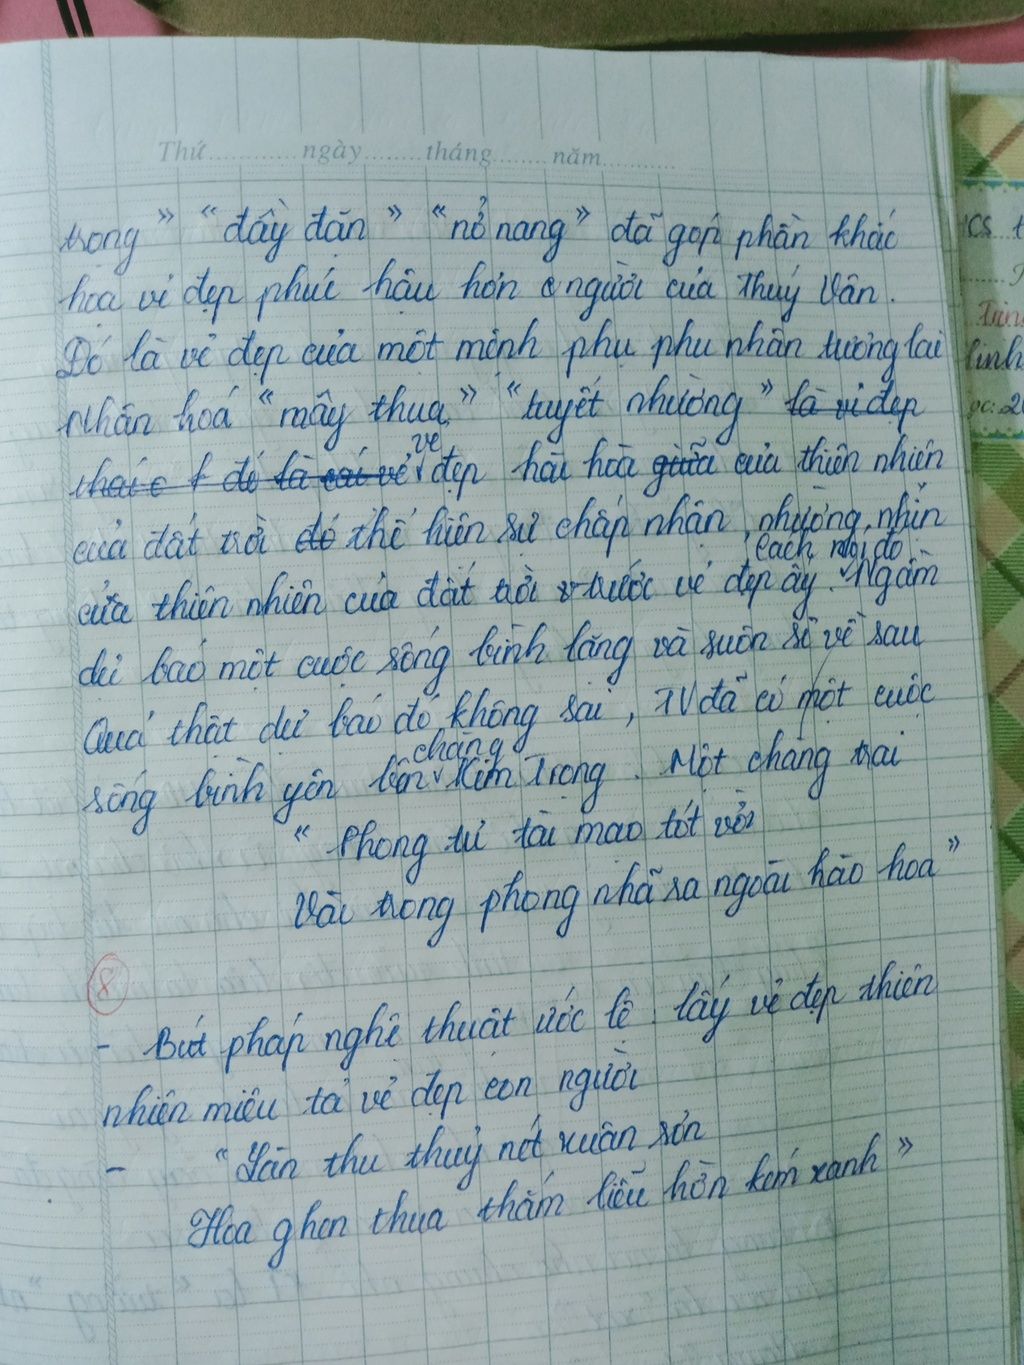 Thứ............ngày........tháng........năm..........
trọng" "đầy đặn" "nở nang" đã góp phần khắc
họa vẻ đẹp phúc hậu hơn người của Thuý Vân.
Đó là vẻ đẹp của một mệnh phụ phu nhân tương lai
Nhân hoá "mây thua" "tuyết nhường" là vẻ đẹp
đó là cái vẻ vẻ đẹp hài hoà giữa của thiên nhiên
của đất trời đó thể hiện sự chấp nhận, nhường nhịn
cách nói đó
của thiên nhiên của đất trời trước vẻ đẹp ấy. Ngầm
dự báo một cuộc sống bình lặng và suôn sẻ về sau
Quả thật dự báo đó không sai, TV đã có một cuộc
chàng
sống bình yên bên Kim Trọng. Một chàng trai
"Phong tư tài mạo tót vời
Vào trong phong nhã ra ngoài hào hoa"
8
- Bút pháp nghệ thuật ước lệ lấy vẻ đẹp thiên
nhiên miêu tả vẻ đẹp con người
- "Làn thu thuỷ nét xuân sơn
Hoa ghen thua thắm liễu hờn kém xanh"